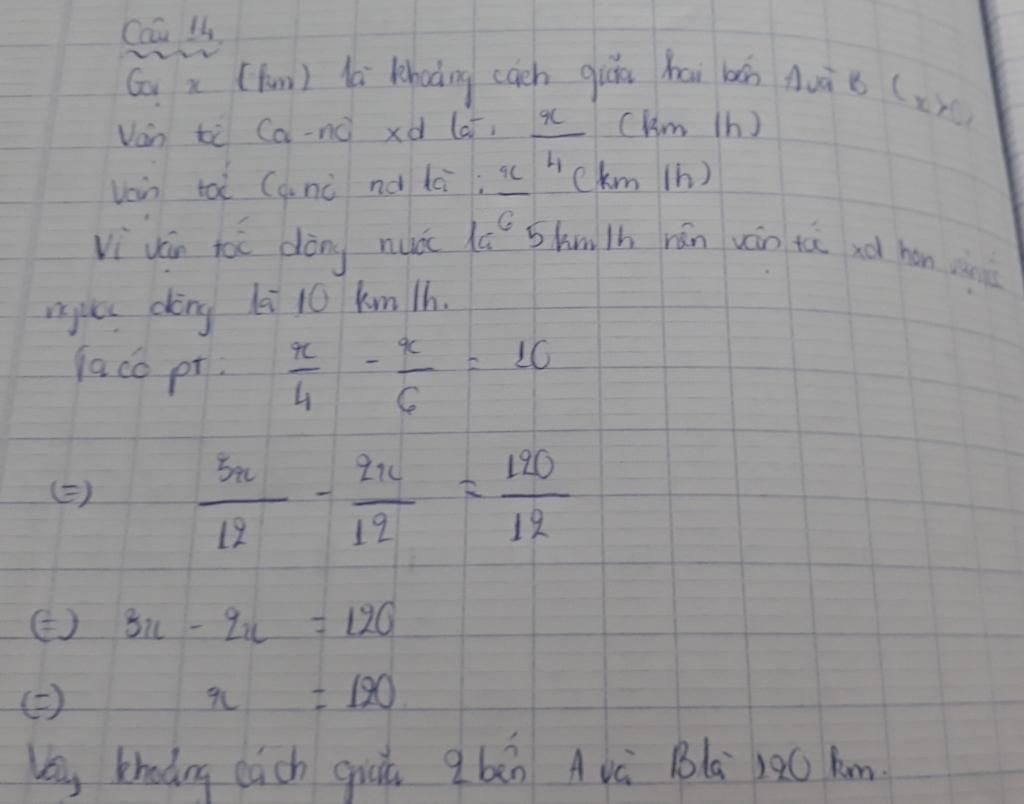 Câu 14
Gọi x (km) là khoảng cách giữa hai bến A và B (x>0)
Vận tốc ca-nô xd là: x/4 (km/h)
Vận tốc ca nô nd là: x/6 (km/h)
Vì vận tốc dòng nước là 5km/h nên vận tốc xd hơn
ngược dòng là 10 km/h.
Ta có pt: x/4 - x/6 = 10
(=) 3x/12 - 2x/12 = 120/12
(=) 3x - 2x = 120
(=) x = 120
Vậy khoảng cách giữa 2 bến A và B là 120 km.